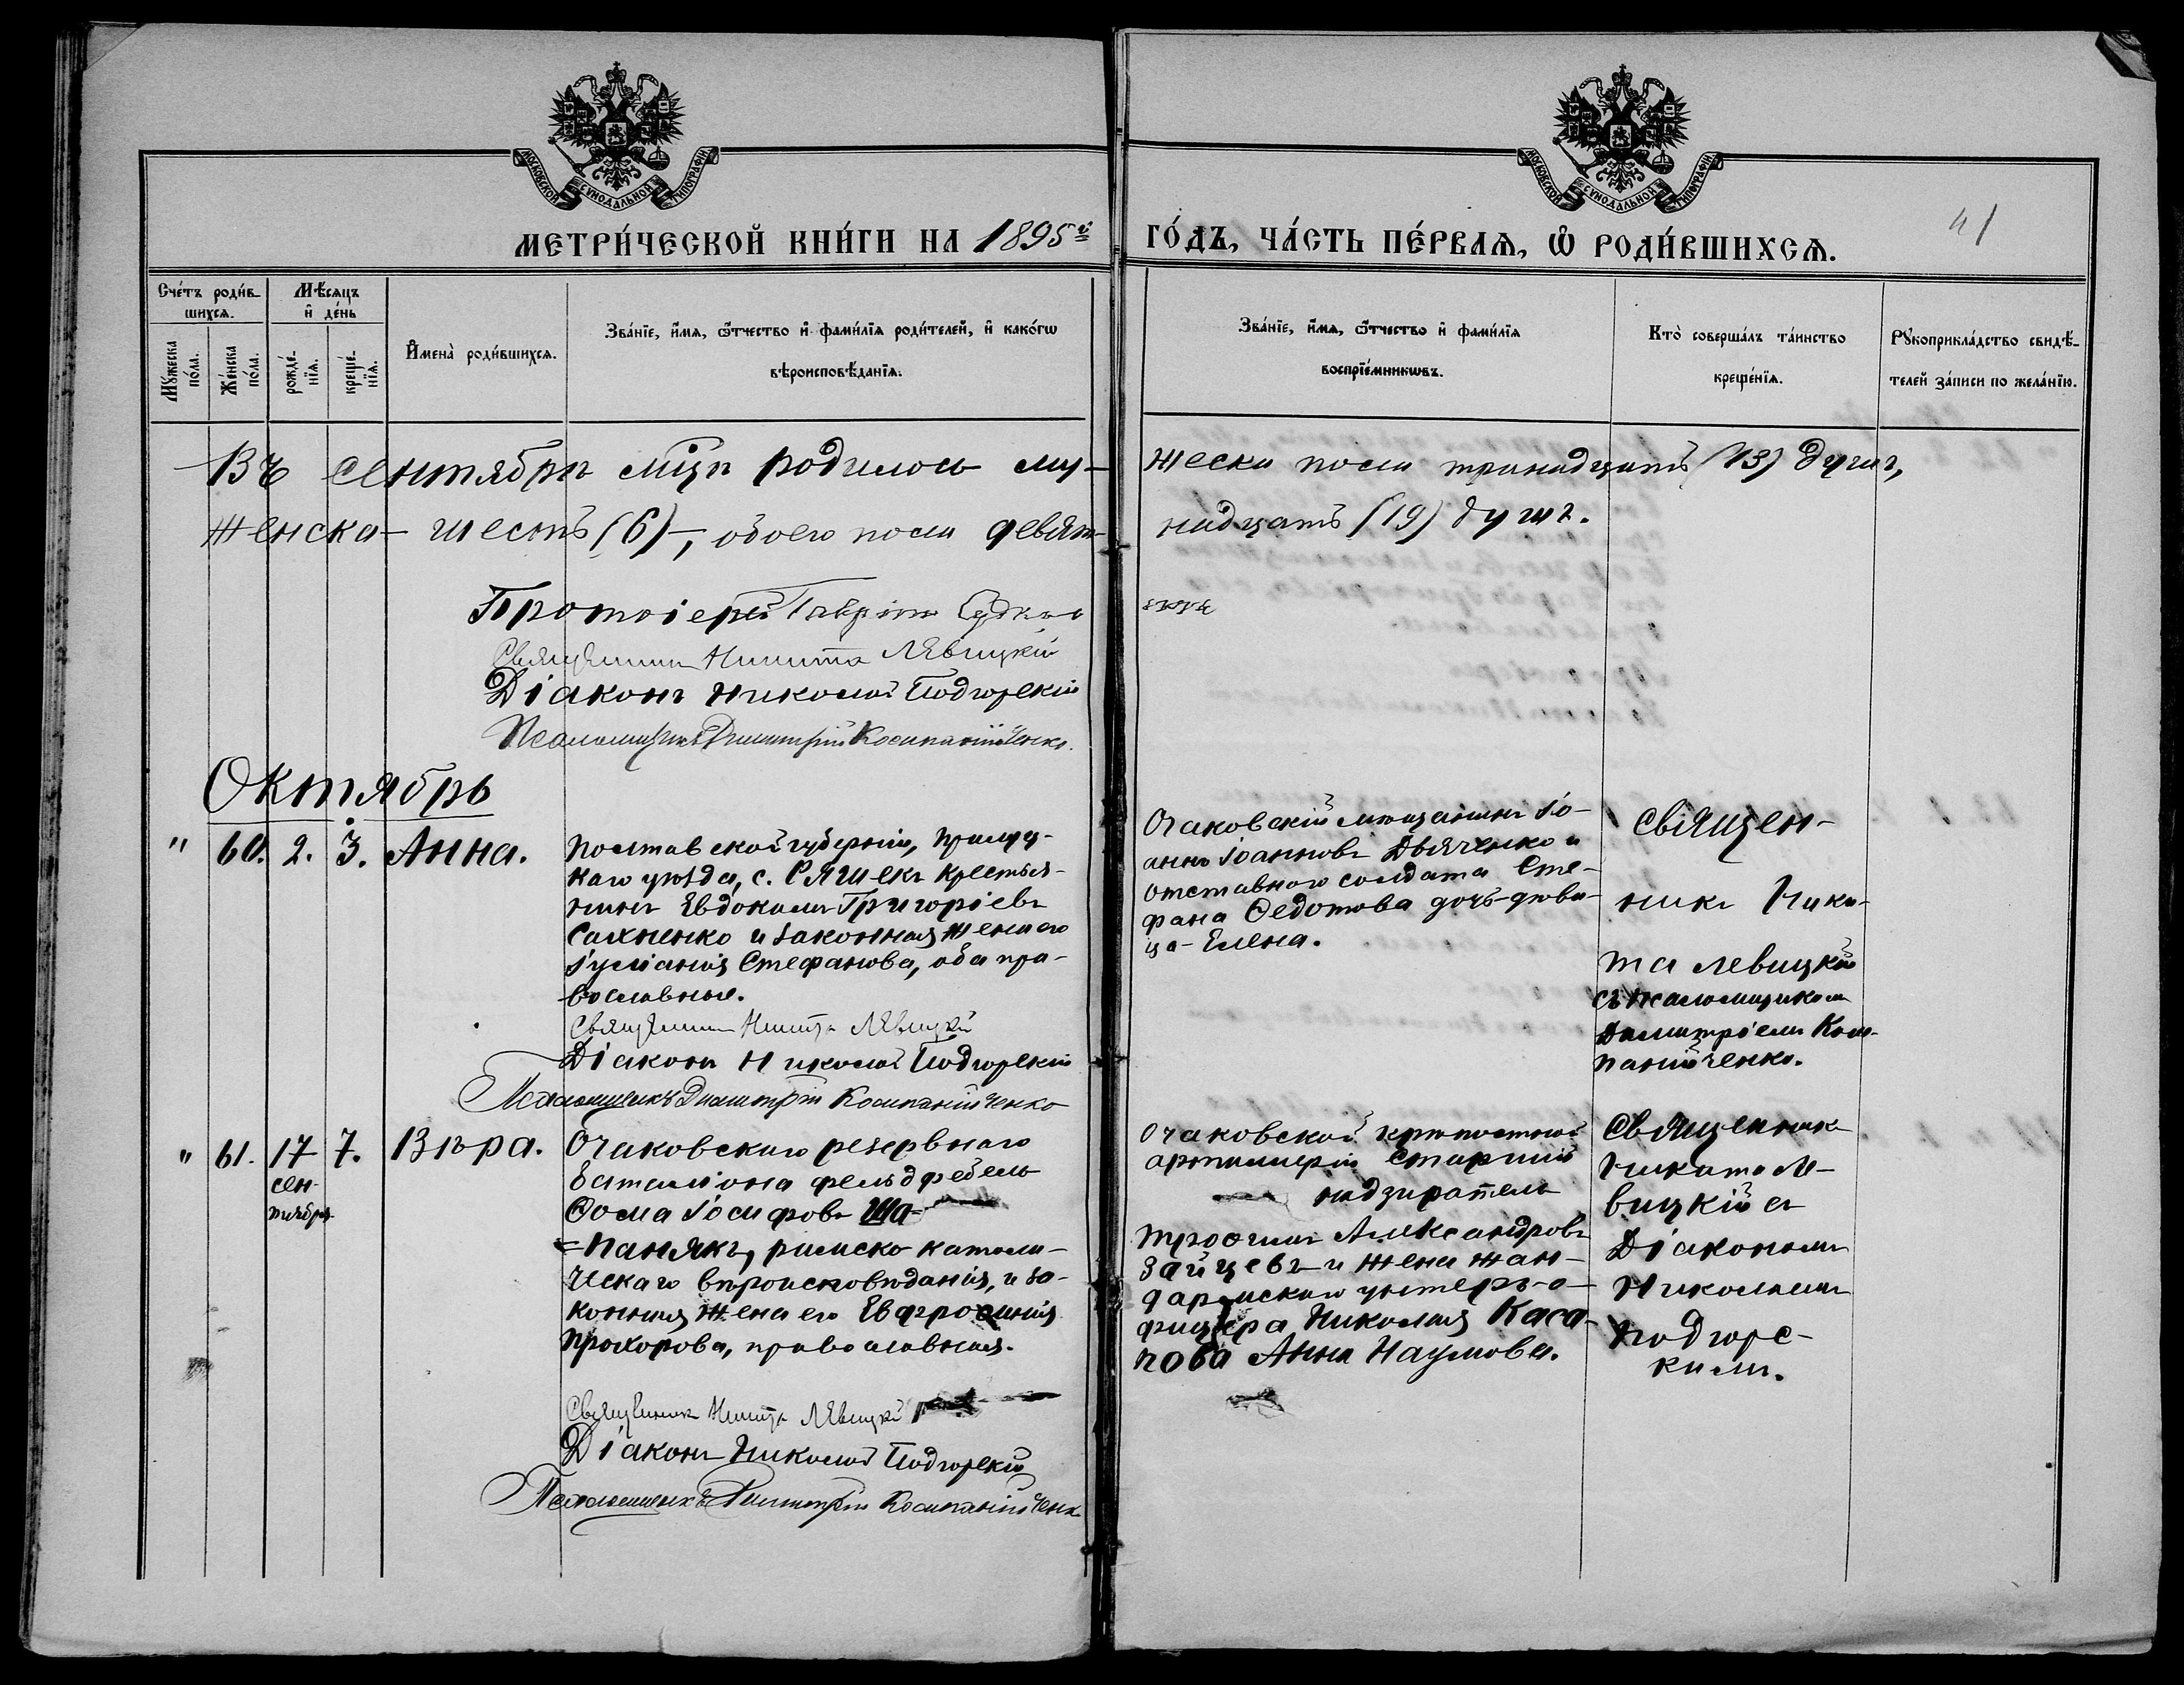 МОСКОВСКОЙ СѴНОДАЛЬНОЙ ТИПОГРАФІИ
МОСКОВСКОЙ СѴНОДАЛЬНОЙ ТИПОГРАФІИ
МЕТРИ́ЧЕСКОЙ КНИ́ГИ НА 1895й ГО́ДЪ, ЧА́СТЬ ПЕ́РВАѦ, Ѡ РОДИ́ВШИХСѦ.
41
Сче́тъ роди́в-
шихсѧ.
Мѣ́сѧцъ
и де́нь
Мꙋ́жеска
по́ла.
Же́нска
по́ла.
рожде́-
нїѧ.
креще́-
нїѧ.
И҆мена̀ роди́вшихсѧ.
Зва́нїе, и҆́мѧ, ѻ҆́тчество и҆ фами́лїѧ роди́телей, и҆ како́гѡ
вѣроисповѣ́данїѧ.
Зва́нїе, и҆́мѧ, ѻ҆́тчество и҆ фами́лїѧ
воспрїе́мникѡвъ.
Кто̀ соверша́лъ та́инство
креще́нїѧ.
Рꙋкоприкла́дство свидѣ́-
телей за́писи по жела́нїю.
Въ сентябрѣ мѣцѣ родилось му-
жеска пола тринадцать (13) душъ,
женска - шесть (6) -, обоего пола девят-
надцать (19) душъ.
Протоіерей Гавріилъ Судко
Священникъ Никита Левицкій
Діаконъ Николай Подгорскій
Псаломщикъ Димитрій Компанійченко.
Октябрь
" 60. 2. 3. Анна.
Полтавской губерніи, Прилуц-
каго уѣзда, с. Сяшекъ крестья-
нинъ Евдокимъ Григоріевъ
Сахненко и законная жена его
Іуліанія Стефанова, оба пра-
вославные.
Священникъ Никита Левицкій
Діаконъ Николай Подгорскій
Псаломщикъ Димитрій Компанійченко
Очаковскій мѣщанинъ Іо-
аннъ Іоанновъ Дьяченко и
отставного солдата Сте-
фана Федотова дочь-дѣви-
ца - Елена.
Священ-
никъ Ники-
та Левицкій
съ псаломщикомъ
Димитріемъ Ком-
панійченко.
" 61. 17 7. Вѣра.
сен-
тября
Очаковскаго резервнаго
баталіона фельдфебель
Ѳома Іосифовъ Ша-
=панякъ, римско католи-
ческаго вѣроисповѣданія, и за-
конная жена его Евфросинія
Прохорова, православная.
Священникъ Никита Левицкій
Діаконъ Николай Подгорскій
Псаломщикъ Димитрій Компанійченко
Очаковской крѣпостной
артиллеріи старшій
надзиратель
Трофимъ Александровъ
Зайцевъ и жена жан-
дармскаго унтеръ-о-
фицера Николая Каса-
нова Анна Наумова.
Священникъ
Никита Ле-
вицкій съ
Діакономъ
Николаемъ
Подгорс-
кимъ.